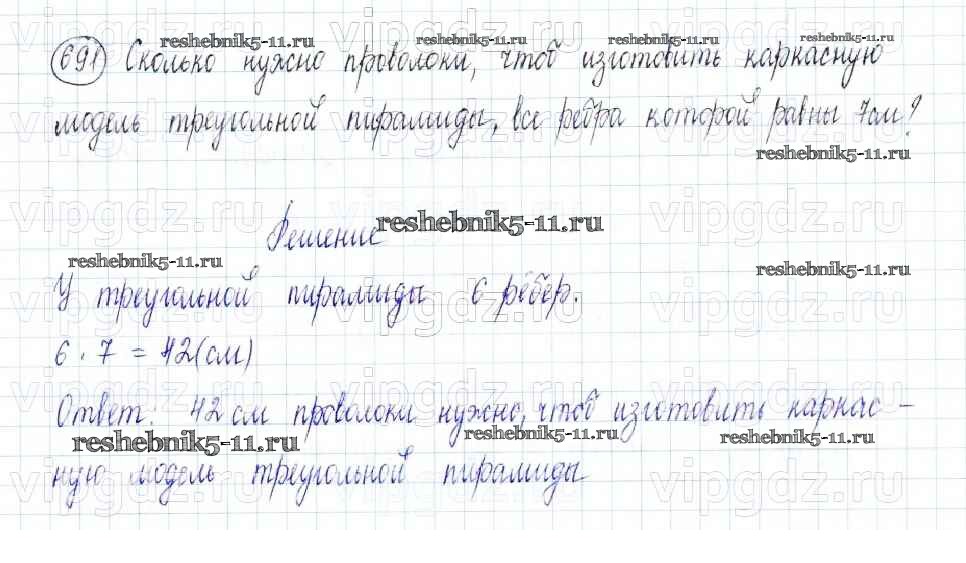 691 Сколько нужно проволоки, чтоб изготовить каркасную
reshebnik5-11.ru reshebnik5-11.ru reshebnik5-11.ru
модель треугольной пирамиды, все рёбра которой равны 7см?
reshebnik5-11.ru
Решение
reshebnik5-11.ru
reshebnik5-11.ru reshebnik5-11.ru
У треугольной пирамиды 6 рёбер.
6 · 7 = 42(см)
Ответ: 42 см проволоки нужно, чтоб изготовить каркас –
reshebnik5-11.ru reshebnik5-11.ru reshebnik5-11.ru
ную модель треугольной пирамиды
vipgdz.ru